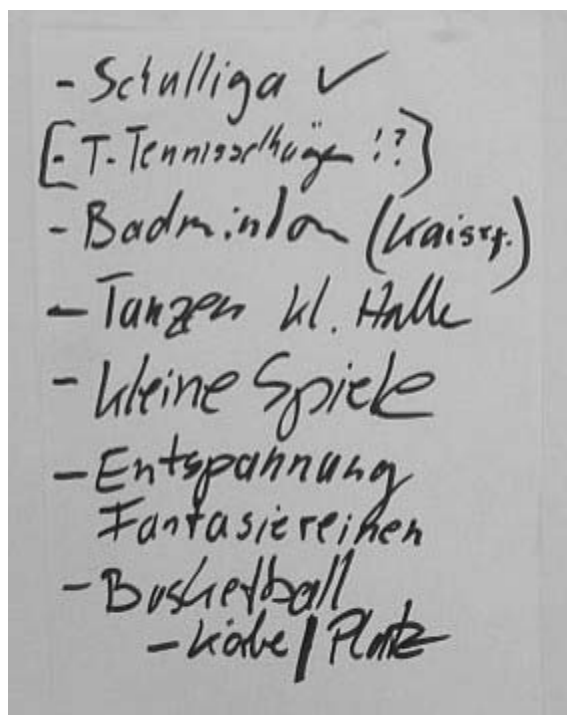 - Schulliga ✓
[- T-Tennisschläger !?]
- Badminton (Kaiserf.)
- Tanzen kl. Halle
- kleine Spiele
- Entspannung
Fantasiereihen
- Basketball
- Körbe / Platz